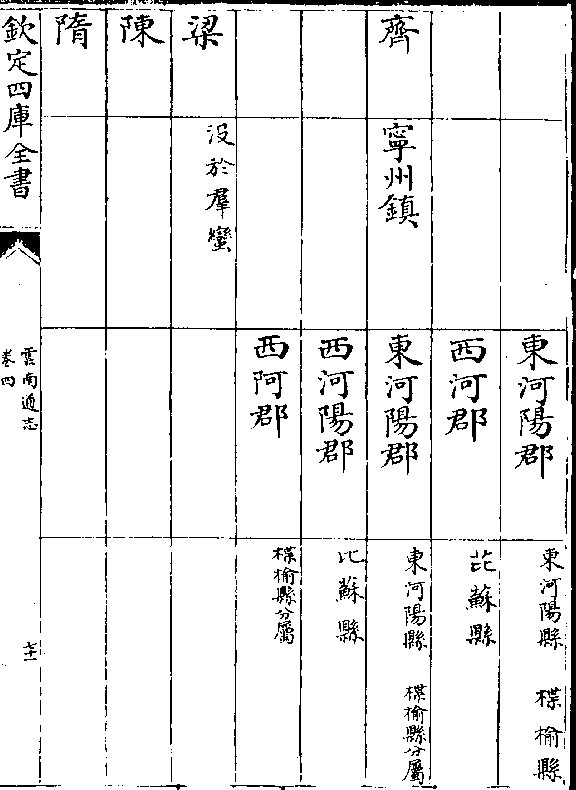 東河陽郡
東河陽縣 楪榆縣
西河郡
芘蘇縣
齊
寧州鎮
東河陽郡
東河陽縣 楪榆縣分屬
西河陽郡
比蘇縣
西阿郡
楪榆縣分屬
梁
沒於羣蠻
陳
隋
欽定四庫全書
雲南通志
卷四